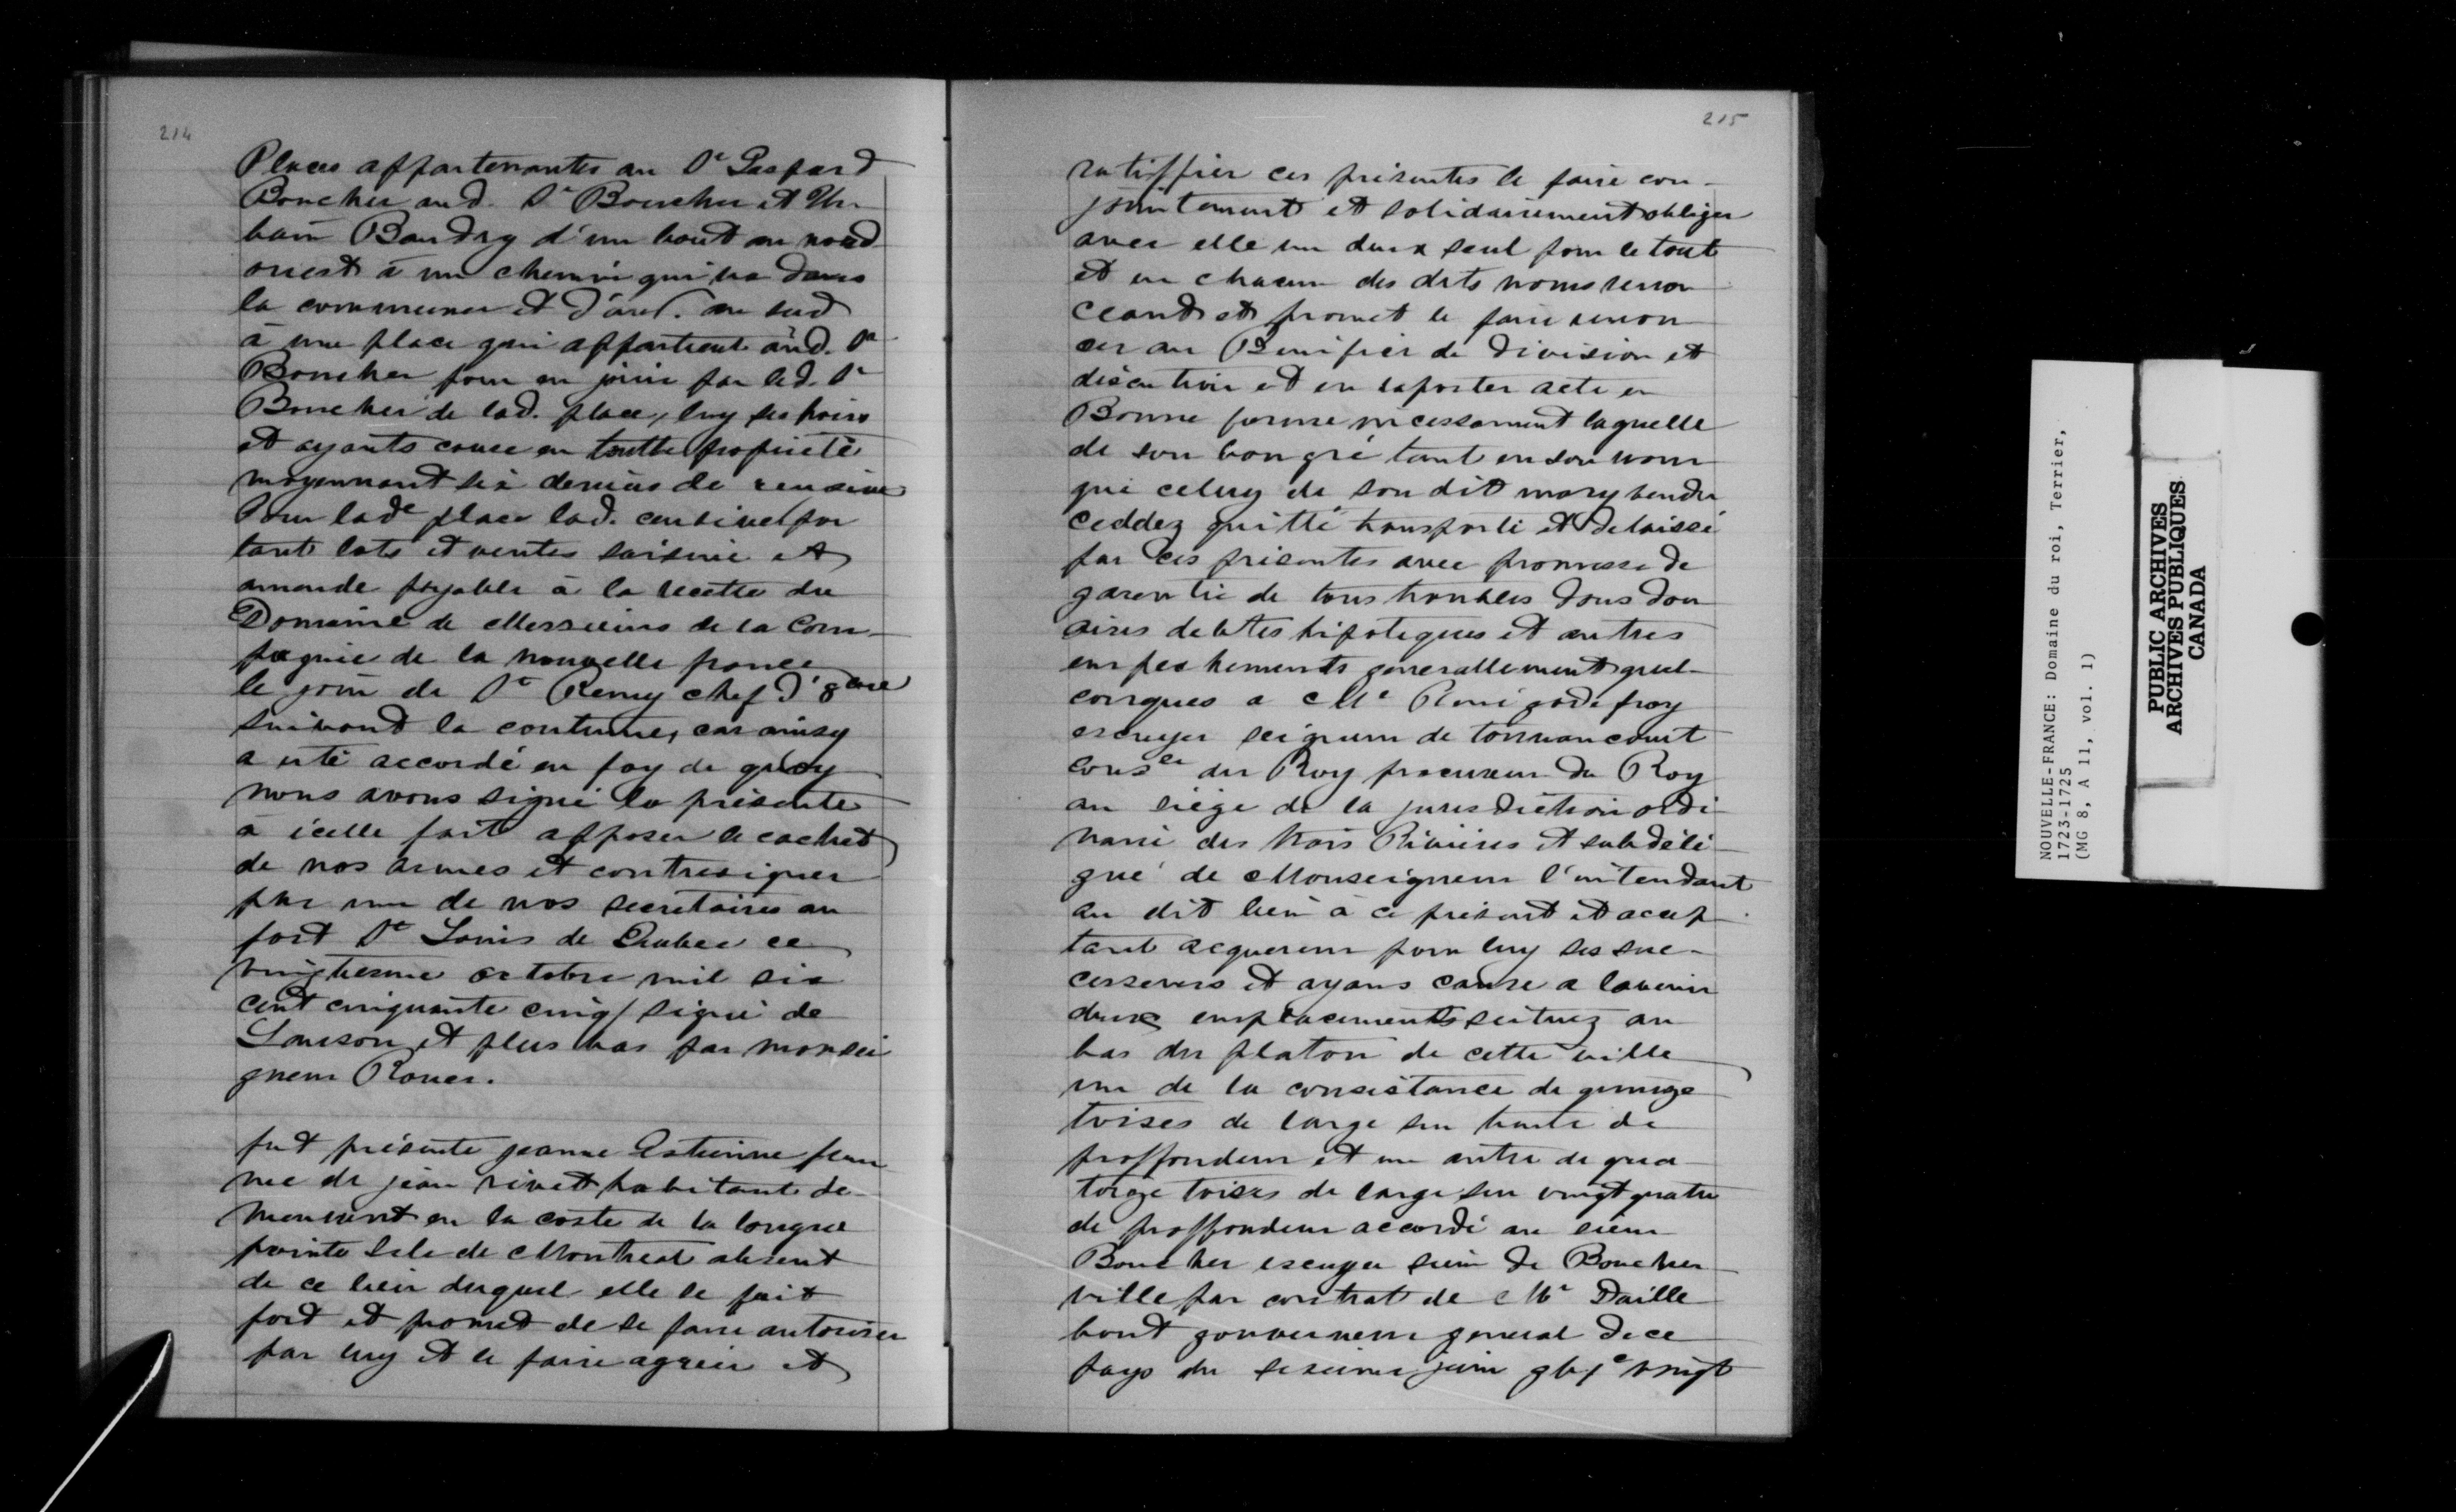 214
Places appartenantes au Sr Gaspard
Boucher aud. Sr Boucher et Ur
bain Baudry d'un bout au nord
ouest à un chemin qui va dans
la commune et d'au. au sud
à une place qui appartient aud. Sr
Boucher pour en jouir par led. Sr
Boucher de lad. place, luy ses hoirs
et ayants cause en toutte propriété
moyennant six deniers de censive
Pour lade place lad. censive por
tant lots et ventes saisine et
amande payable à la recette du
Domaine de Messieurs de la Com-
pagnie de la nouvelle france
le jour de St Remy chef d'8bre
suivant la coutume, car ainsy
a esté accordé en foy de quoy
nous avons signé la présente
à icelle fait apposer le cachet
de nos armes et contresigner
par un de nos secretaires au
fort St Louis de Quebec ce
vingtiesme octobre mil six
cent cinquante cinq/ signé de
Lauson et plus bas par monsei
gneur Rouer.
fut présente jeanne Estienne fem
me de jean rivet habitant de-
meurant en la coste de la longue
pointe isle de Montreal absent
de ce lieu duquel elle se fait
fort et promet de se faire autoriser
par luy et le faire agréer et
215
ratiffier ces présentes le faire con-
jointement et solidairement obliger
avec elle un deux seul pour le tout
et un chacun des dits noms renon
ceant et promet le faire renon
cer au Benifier de division et
discution et en raporter acte en
Bonne forme incessament laquelle
de son bon gré tant en son nom
que celuy de son dit mary vendu
ceddez quitté transporté et delaissé
par ces présentes avec promesse de
garentie de tous troubles dons dou
aires debtes hipoteques et autres
empeshements generallement quel-
conques a Mr René godefroy
escuyer seigneur de tonnancourt
conser du Roy procureur du Roy
au siège de la jurisdiction ordi
naire des trois Rivières et subdélé
gué de Monseigneur l'intendant
au dit lieu à ce présent et accep
tant acquereur pour luy ses suc-
cesseurs et ayans cause a lavenir
deux emplacements scituez au
bas du platon de cette ville
un de la consistance de quinze
toises de large sur trente de
proffondeur et un autre de qua
torze toises de large sur vingt quatre
de proffondeur accordé au sieur
Boucher escuyer sieur de Boucher
ville par contrat de Mr Daille
bout gouverneur general de ce
pays du seizieme juin vingt
NOUVELLE-FRANCE: Domaine du roi, Terrier,
1723-1725
(MG 8, A 11, vol. 1)
PUBLIC ARCHIVES
ARCHIVES PUBLIQUES
CANADA